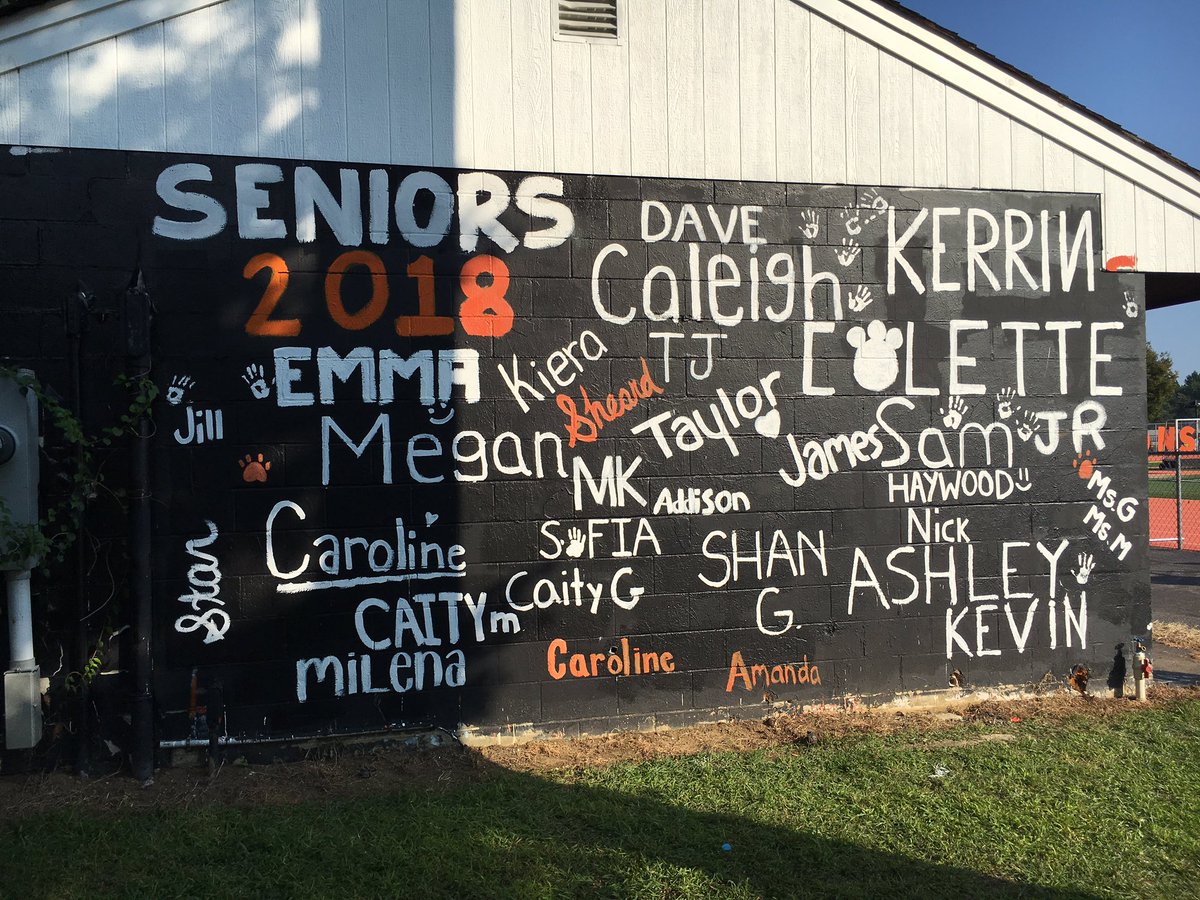 SENIORS
2018
DAVE
KERRIN
Caleigh
EMMA
Kiera
TJ
COLETTE
Jill
Sheard
Taylor
Megan
James
Sam
JR
MK
Addison
HAYWOOD
Ms. G
Ms. M
Caroline
SOFIA
Nick
Star
SHAN
G.
ASHLEY
Caity G
CAITY m
KEVIN
MiLena
Caroline
Amanda
NS